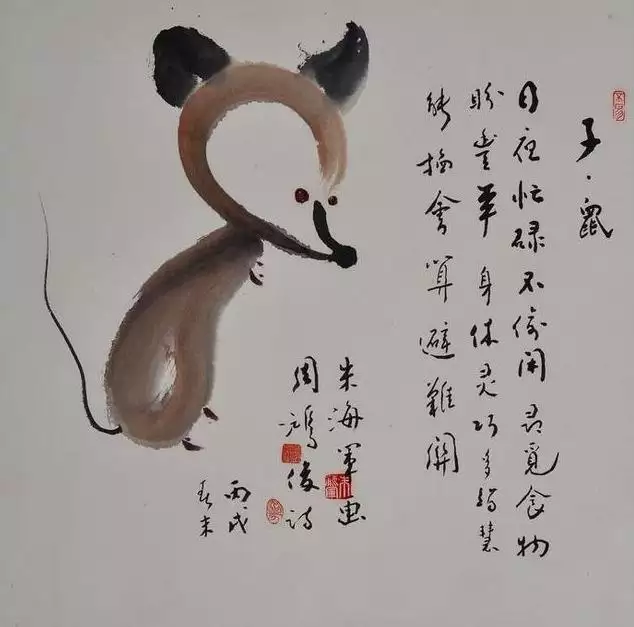 子·鼠
日夜忙碌不偷闲寻觅食物
盼丰年身体灵巧多智慧
能掐会算避难关
朱海军画
周鸿俊诗
丙戌
春末